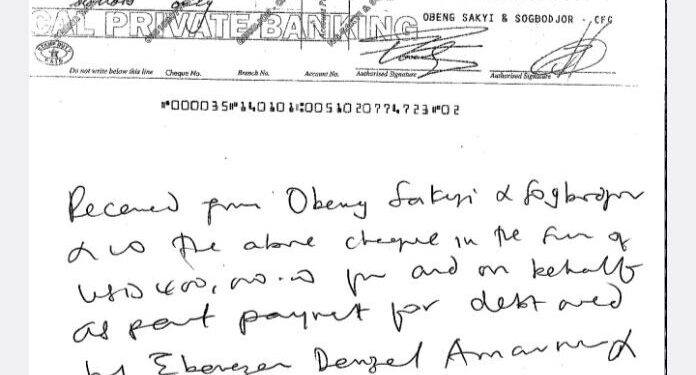 only
CAL PRIVATE BANKING
OBENG SAKYI & SOGBODJOR - CFG
Do not write below this line Cheque No. Branch No. Account No. Authorised Signature Authorised Signature
⑈000035⑈140101⑆0051020774723⑈02
Received from Obeng Sakyi & Sogbodjor
& Co the above cheque in the sum of
USD 400,000.00 for and on behalf
as part payment for debt owed
by Ebenezer Denzel Amanor &